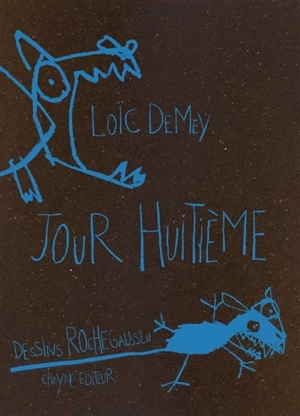 LOÏC DEMEY
JOUR HUITIÈME
DESSINS ROCHEGAUSSEN
CHEYNE ÉDITEUR